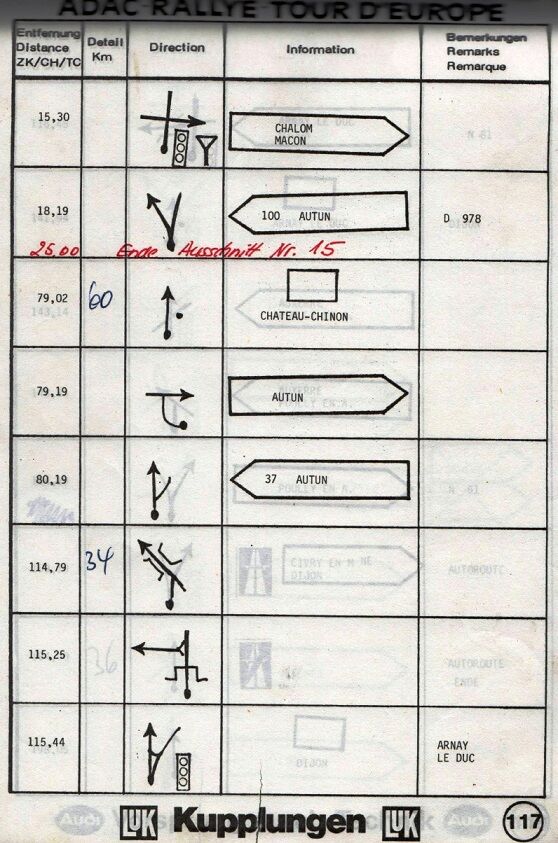 ADAC RALLYE TOUR D'EUROPE
Entfernung
Distance
ZK/CH/TC
Detail
Km
Direction
Information
Bemerkungen
Remarks
Remarque
15,30
CHALOM
MACON
18,19
100 AUTUN
D 978
25.00 Ende Ausschnitt Nr. 15
79,02
60
CHATEAU-CHINON
79,19
AUTUN
80,19
37 AUTUN
114,79
34
115,25
115,44
ARNAY
LE DUC
LUK Kupplungen LUK
117